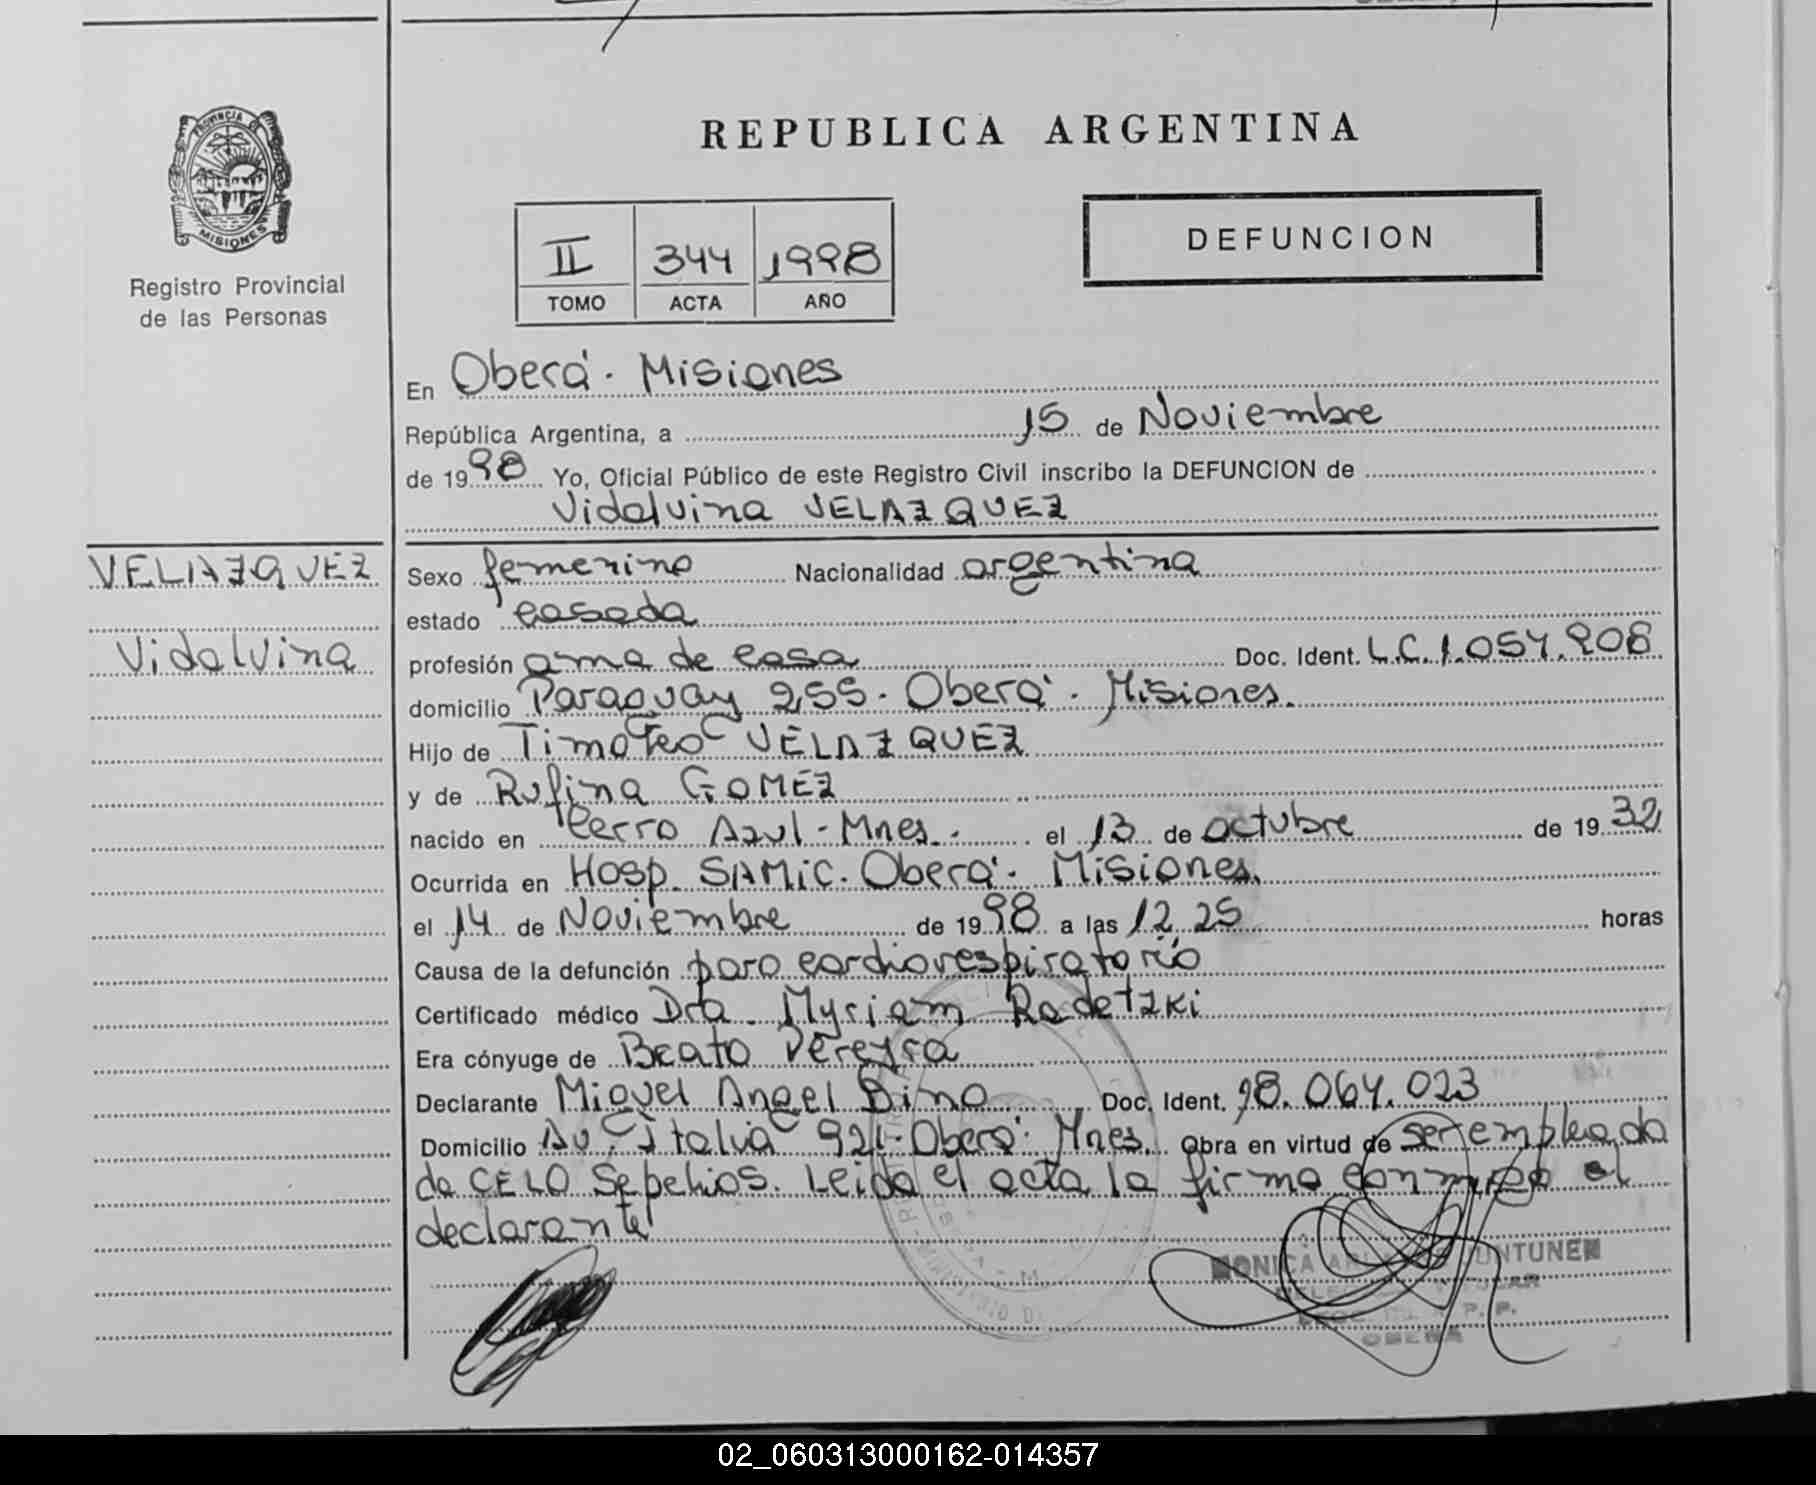 PROVINCIA DE
MISIONES
Registro Provincial
de las Personas
REPUBLICA ARGENTINA
II 344 1998
TOMO ACTA AÑO
DEFUNCION
En Oberá. Misiones
República Argentina, a 15 de Noviembre
de 1998 Yo, Oficial Público de este Registro Civil inscribo la DEFUNCION de
Vidalvina VELAZQUEZ
VELAZQUEZ
Vidalvina
Sexo femenino Nacionalidad argentina
estado casada
profesión ama de casa Doc. Ident. L.C. 1.054.908
domicilio Paraguay 255. Oberá. Misiones.
Hijo de Timoteo VELAZQUEZ
y de Rufina GOMEZ
nacido en Cerro Azul - Mnes. el 13 de octubre de 1932
Ocurrida en Hosp. SAMIC. Oberá. Misiones.
el 14 de Noviembre de 1998 a las 12,25 horas
Causa de la defunción paro cardiorespiratorio
Certificado médico Dra. Myriam Radetzki
Era cónyuge de Beato Pereyra
Declarante Miguel Angel Dino Doc. Ident. 18.064.023
Domicilio Av. Italia 921 - Oberá. Mnes. Obra en virtud de ser empleado
de CELO Sepelios. Leida el acta la firma conmigo el
declarante
MONICA UNTUNEN
OBERA
02_060313000162-014357